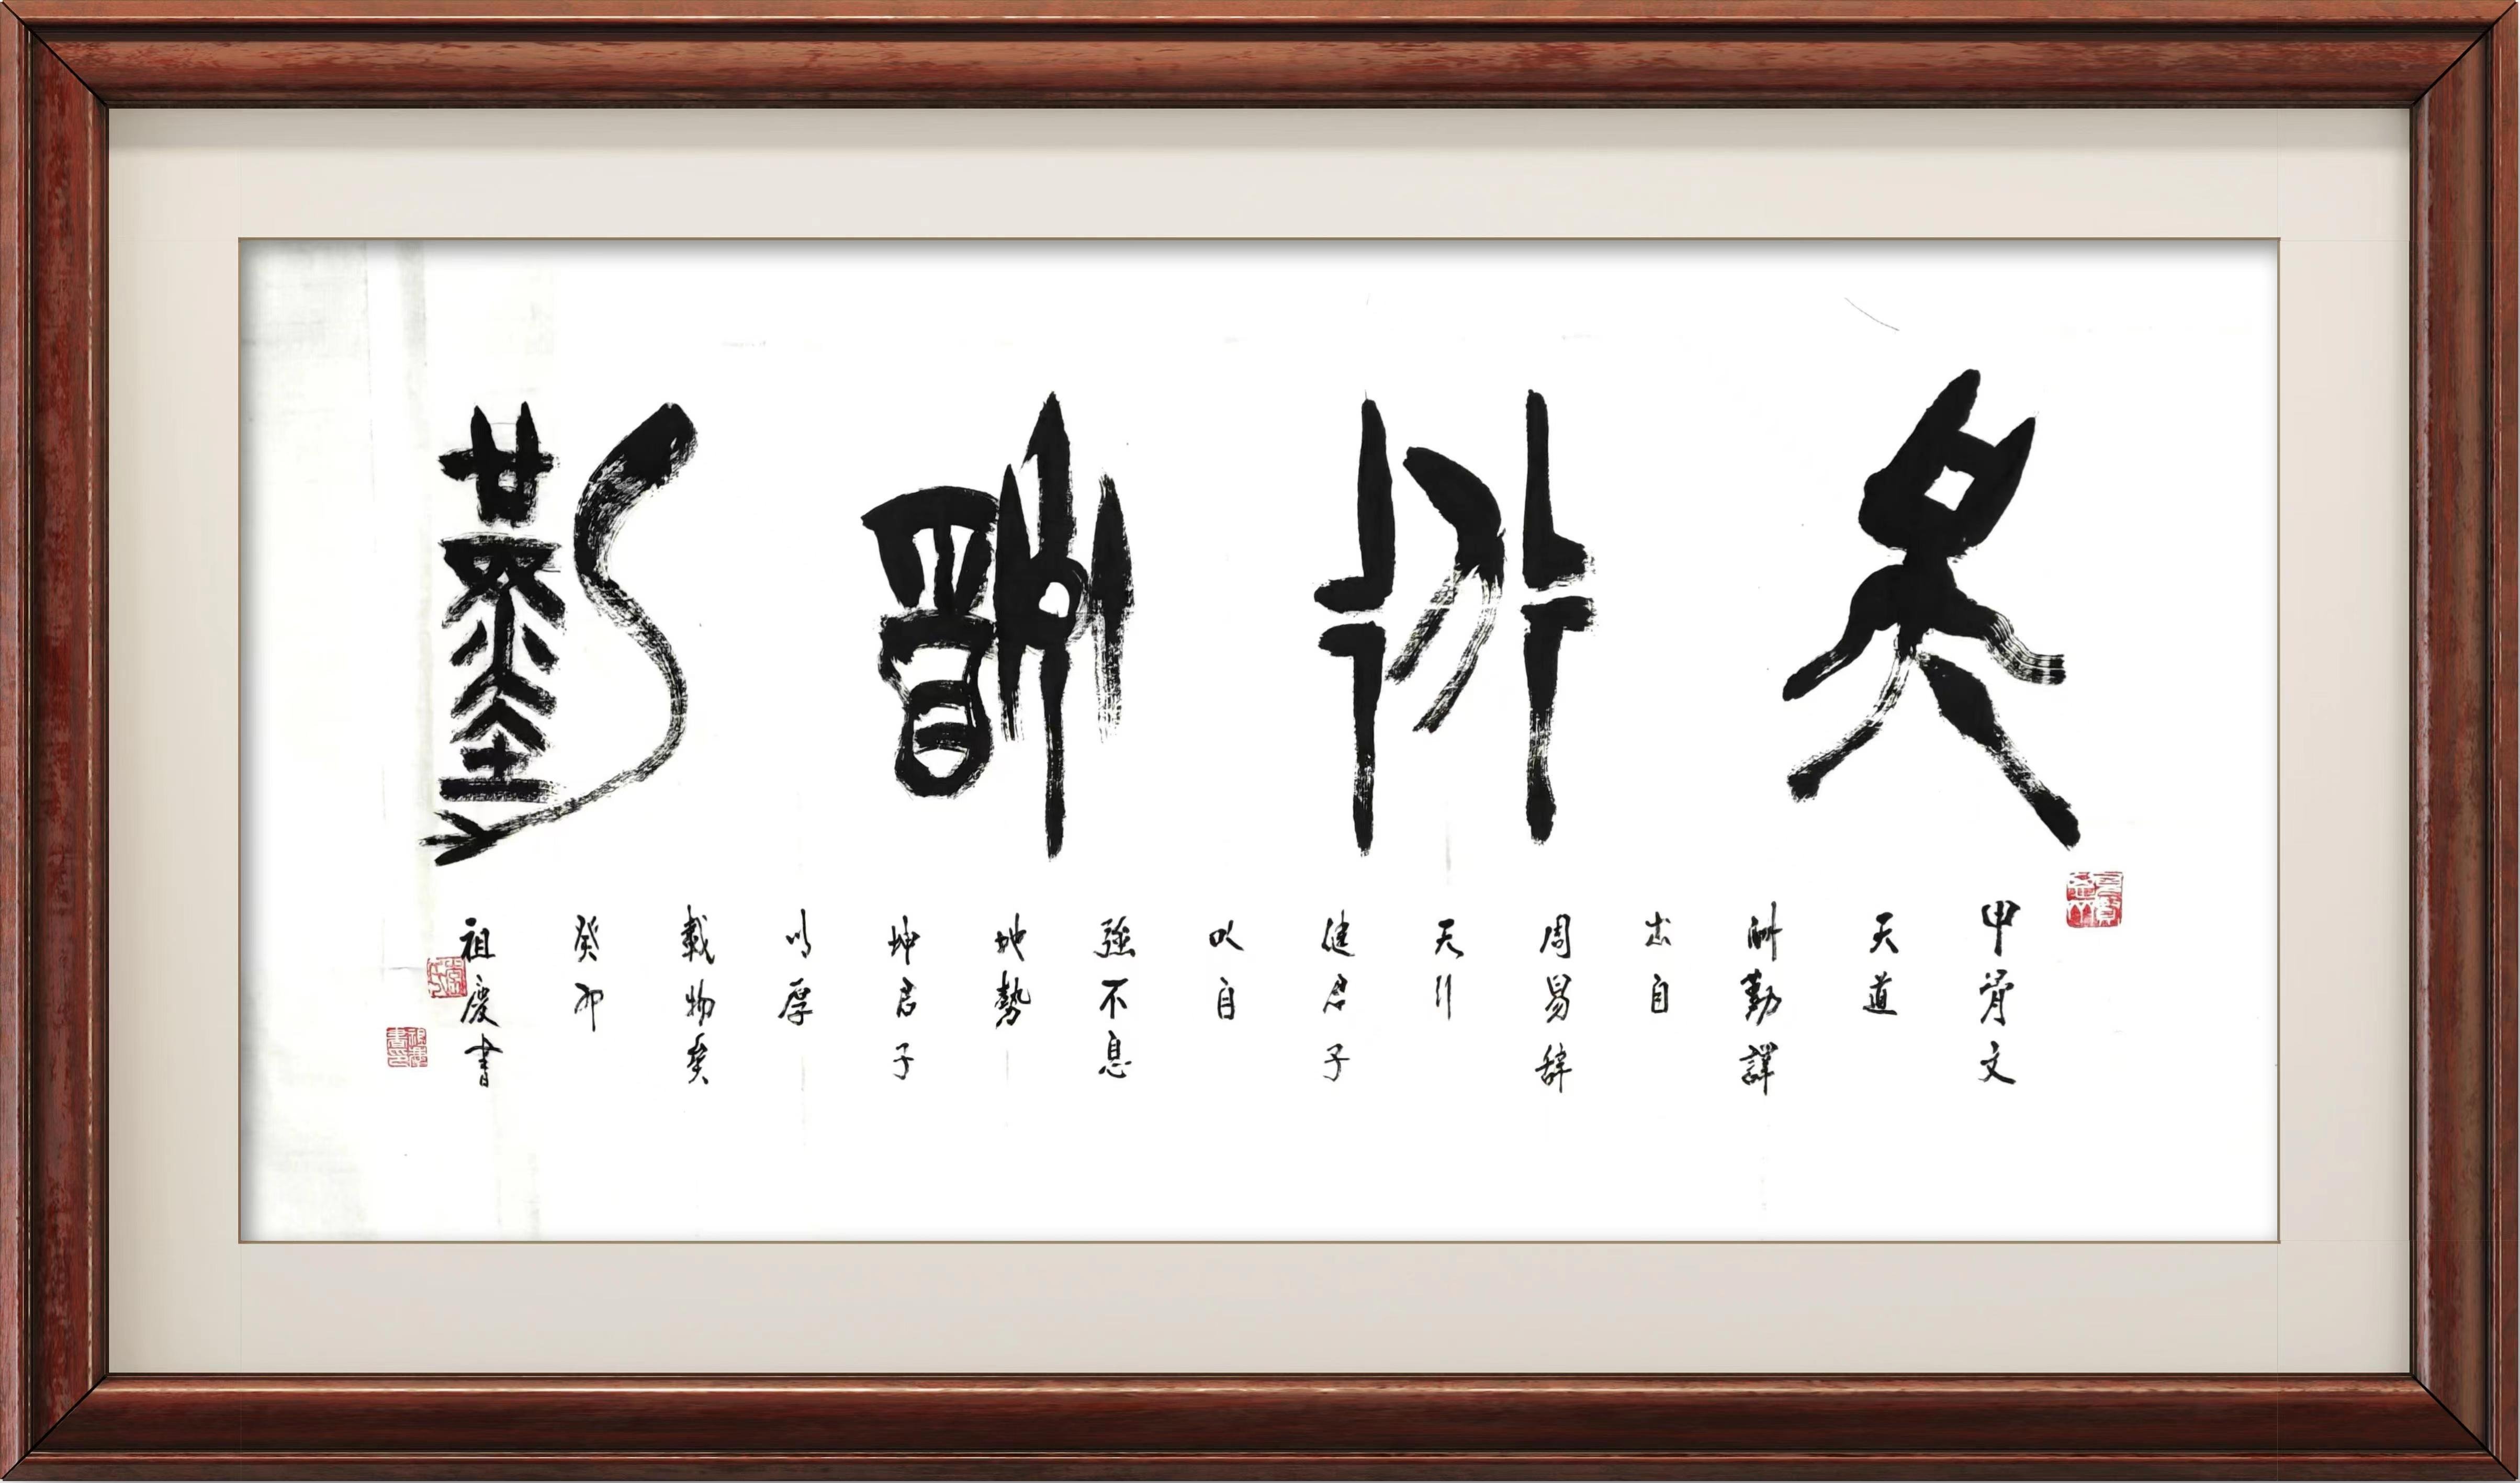 天道酬勤
甲骨文
天道
酬勤譯
出自
周易辞
天行
健君子
以自
強不息
地勢
坤君子
以厚
載物矣
癸卯
祖慶書